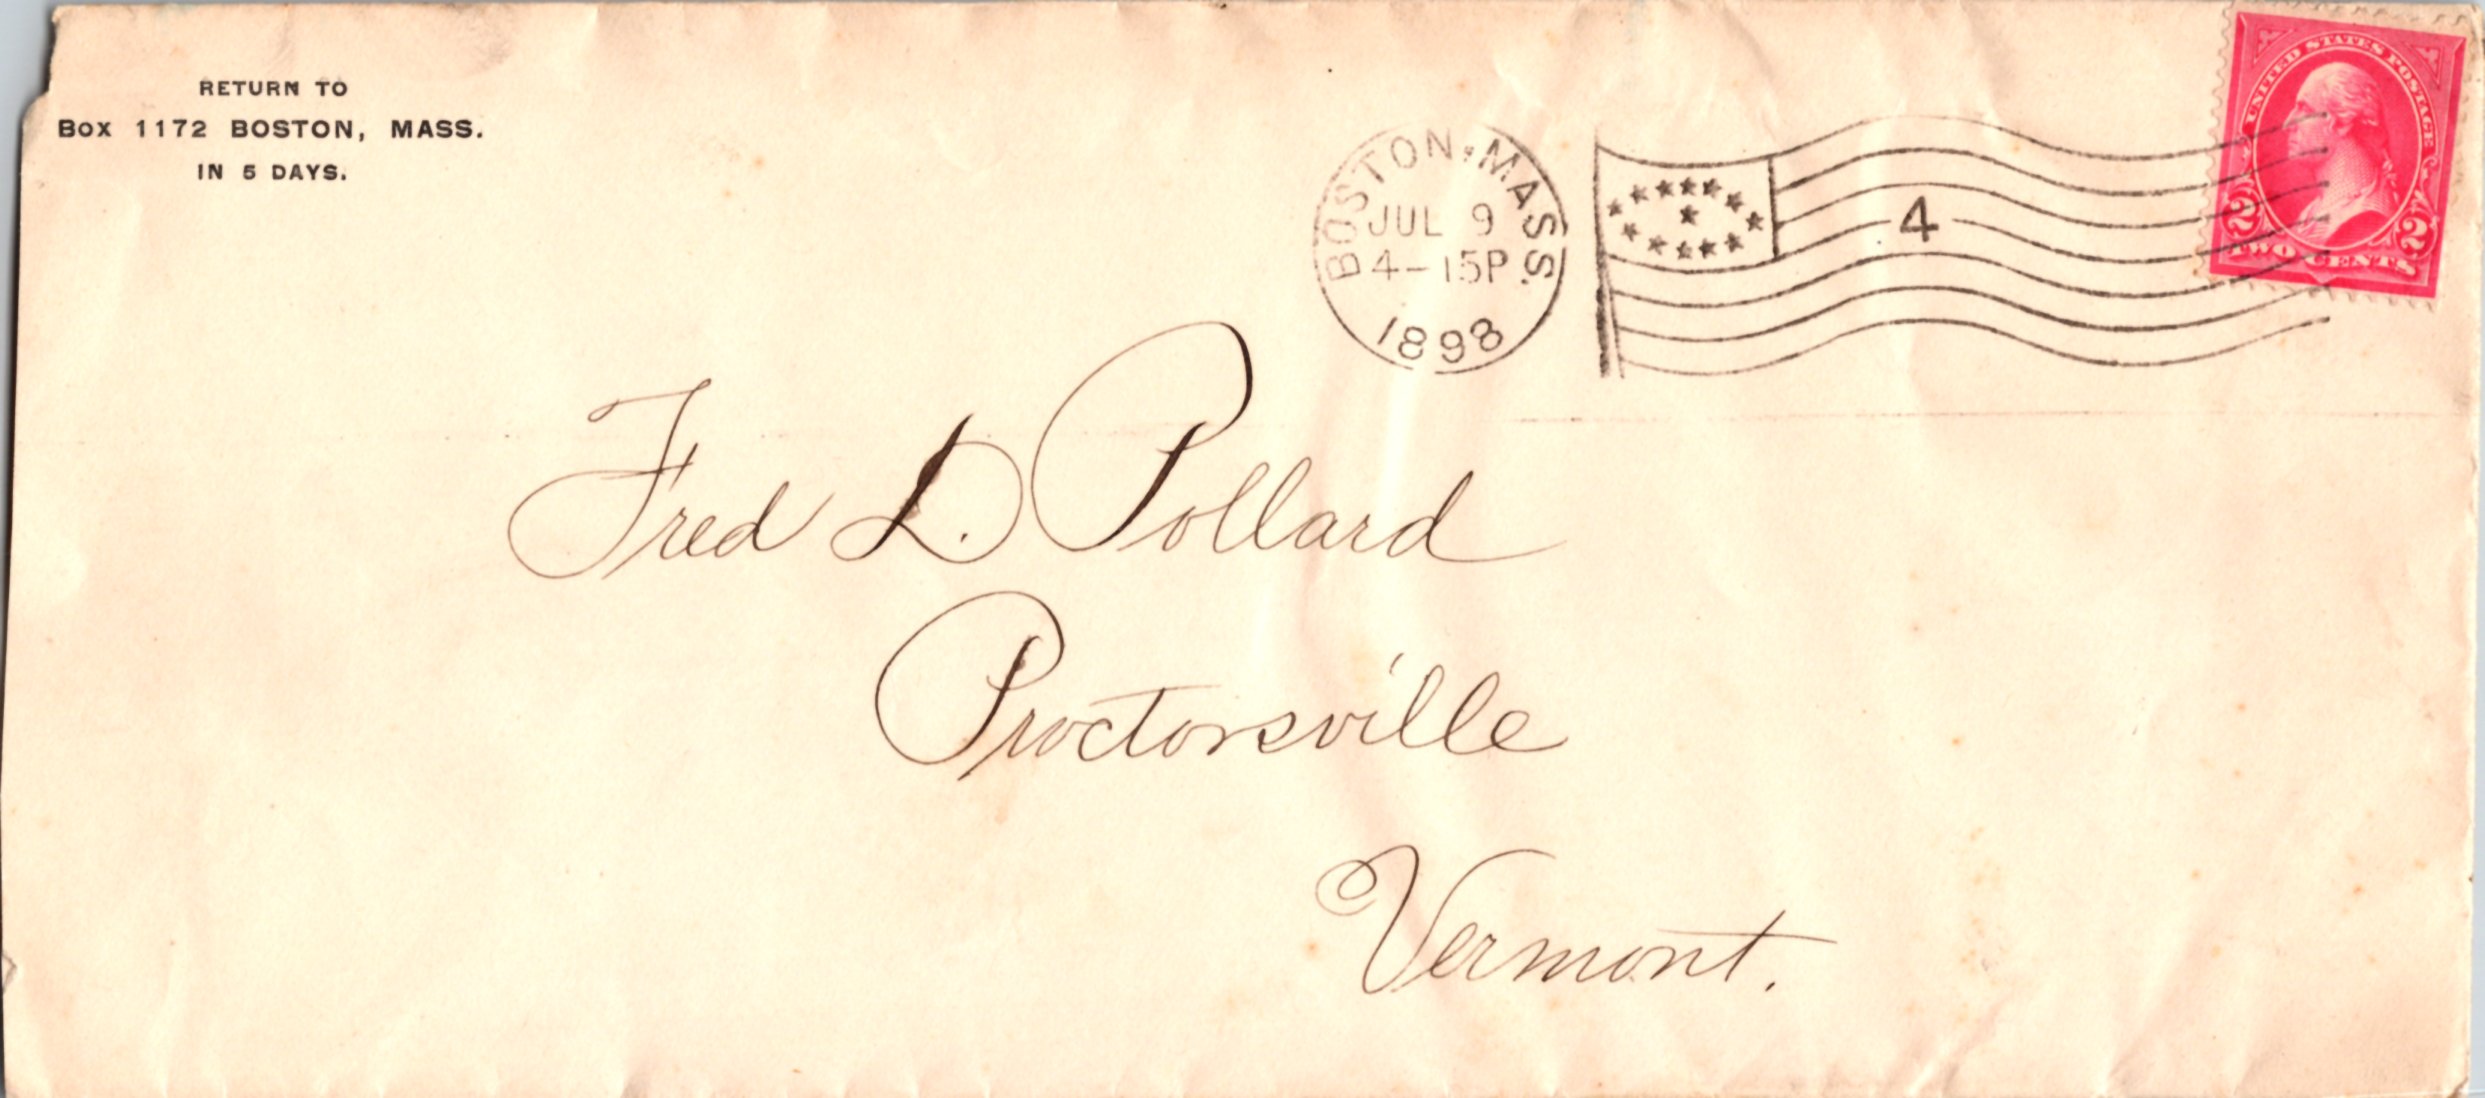 RETURN TO
Box 1172 BOSTON, MASS.
IN 5 DAYS.
BOSTON, MASS.
JUL 9
4-15P
1898
4
UNITED STATES POSTAGE
2 2
TWO CENTS
Fred D. Pollard
Proctorsville
Vermont.